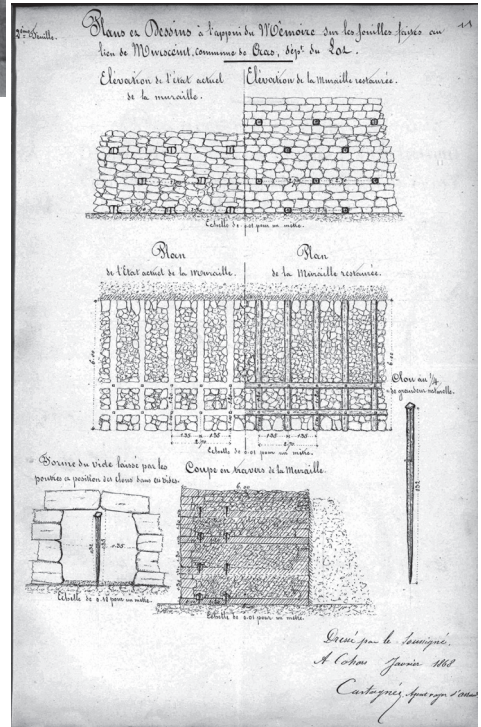 2ème feuille.
Plans et Dessins à l'appui du Mémoire sur les fouilles faites au
lieu de Murseint, commune de Cras, dépt. du Lot.
Elévation de l'état actuel
de la muraille.
Elévation de la Muraille restaurée.
Echelle de 0.01 pour un mètre.
Plan
de l'Etat actuel de la Muraille.
Plan
de la Muraille restaurée.
6.00
6.00
1.35 1.35
2.70
1.35 1.35
2.70
Echelle de 0.01 pour un mètre.
Clou au 1/4
de grandeur naturelle.
Forme du vide laissé par les
poutres et position des clous dans ces vides.
1.35
Coupe en travers de la Muraille.
6.00
Echelle de pour un mètre.
Echelle de 0.01 pour un mètre.
Dressé par le Soussigné.
A Cahors Janvier 1868
Castagné, Agent voyer